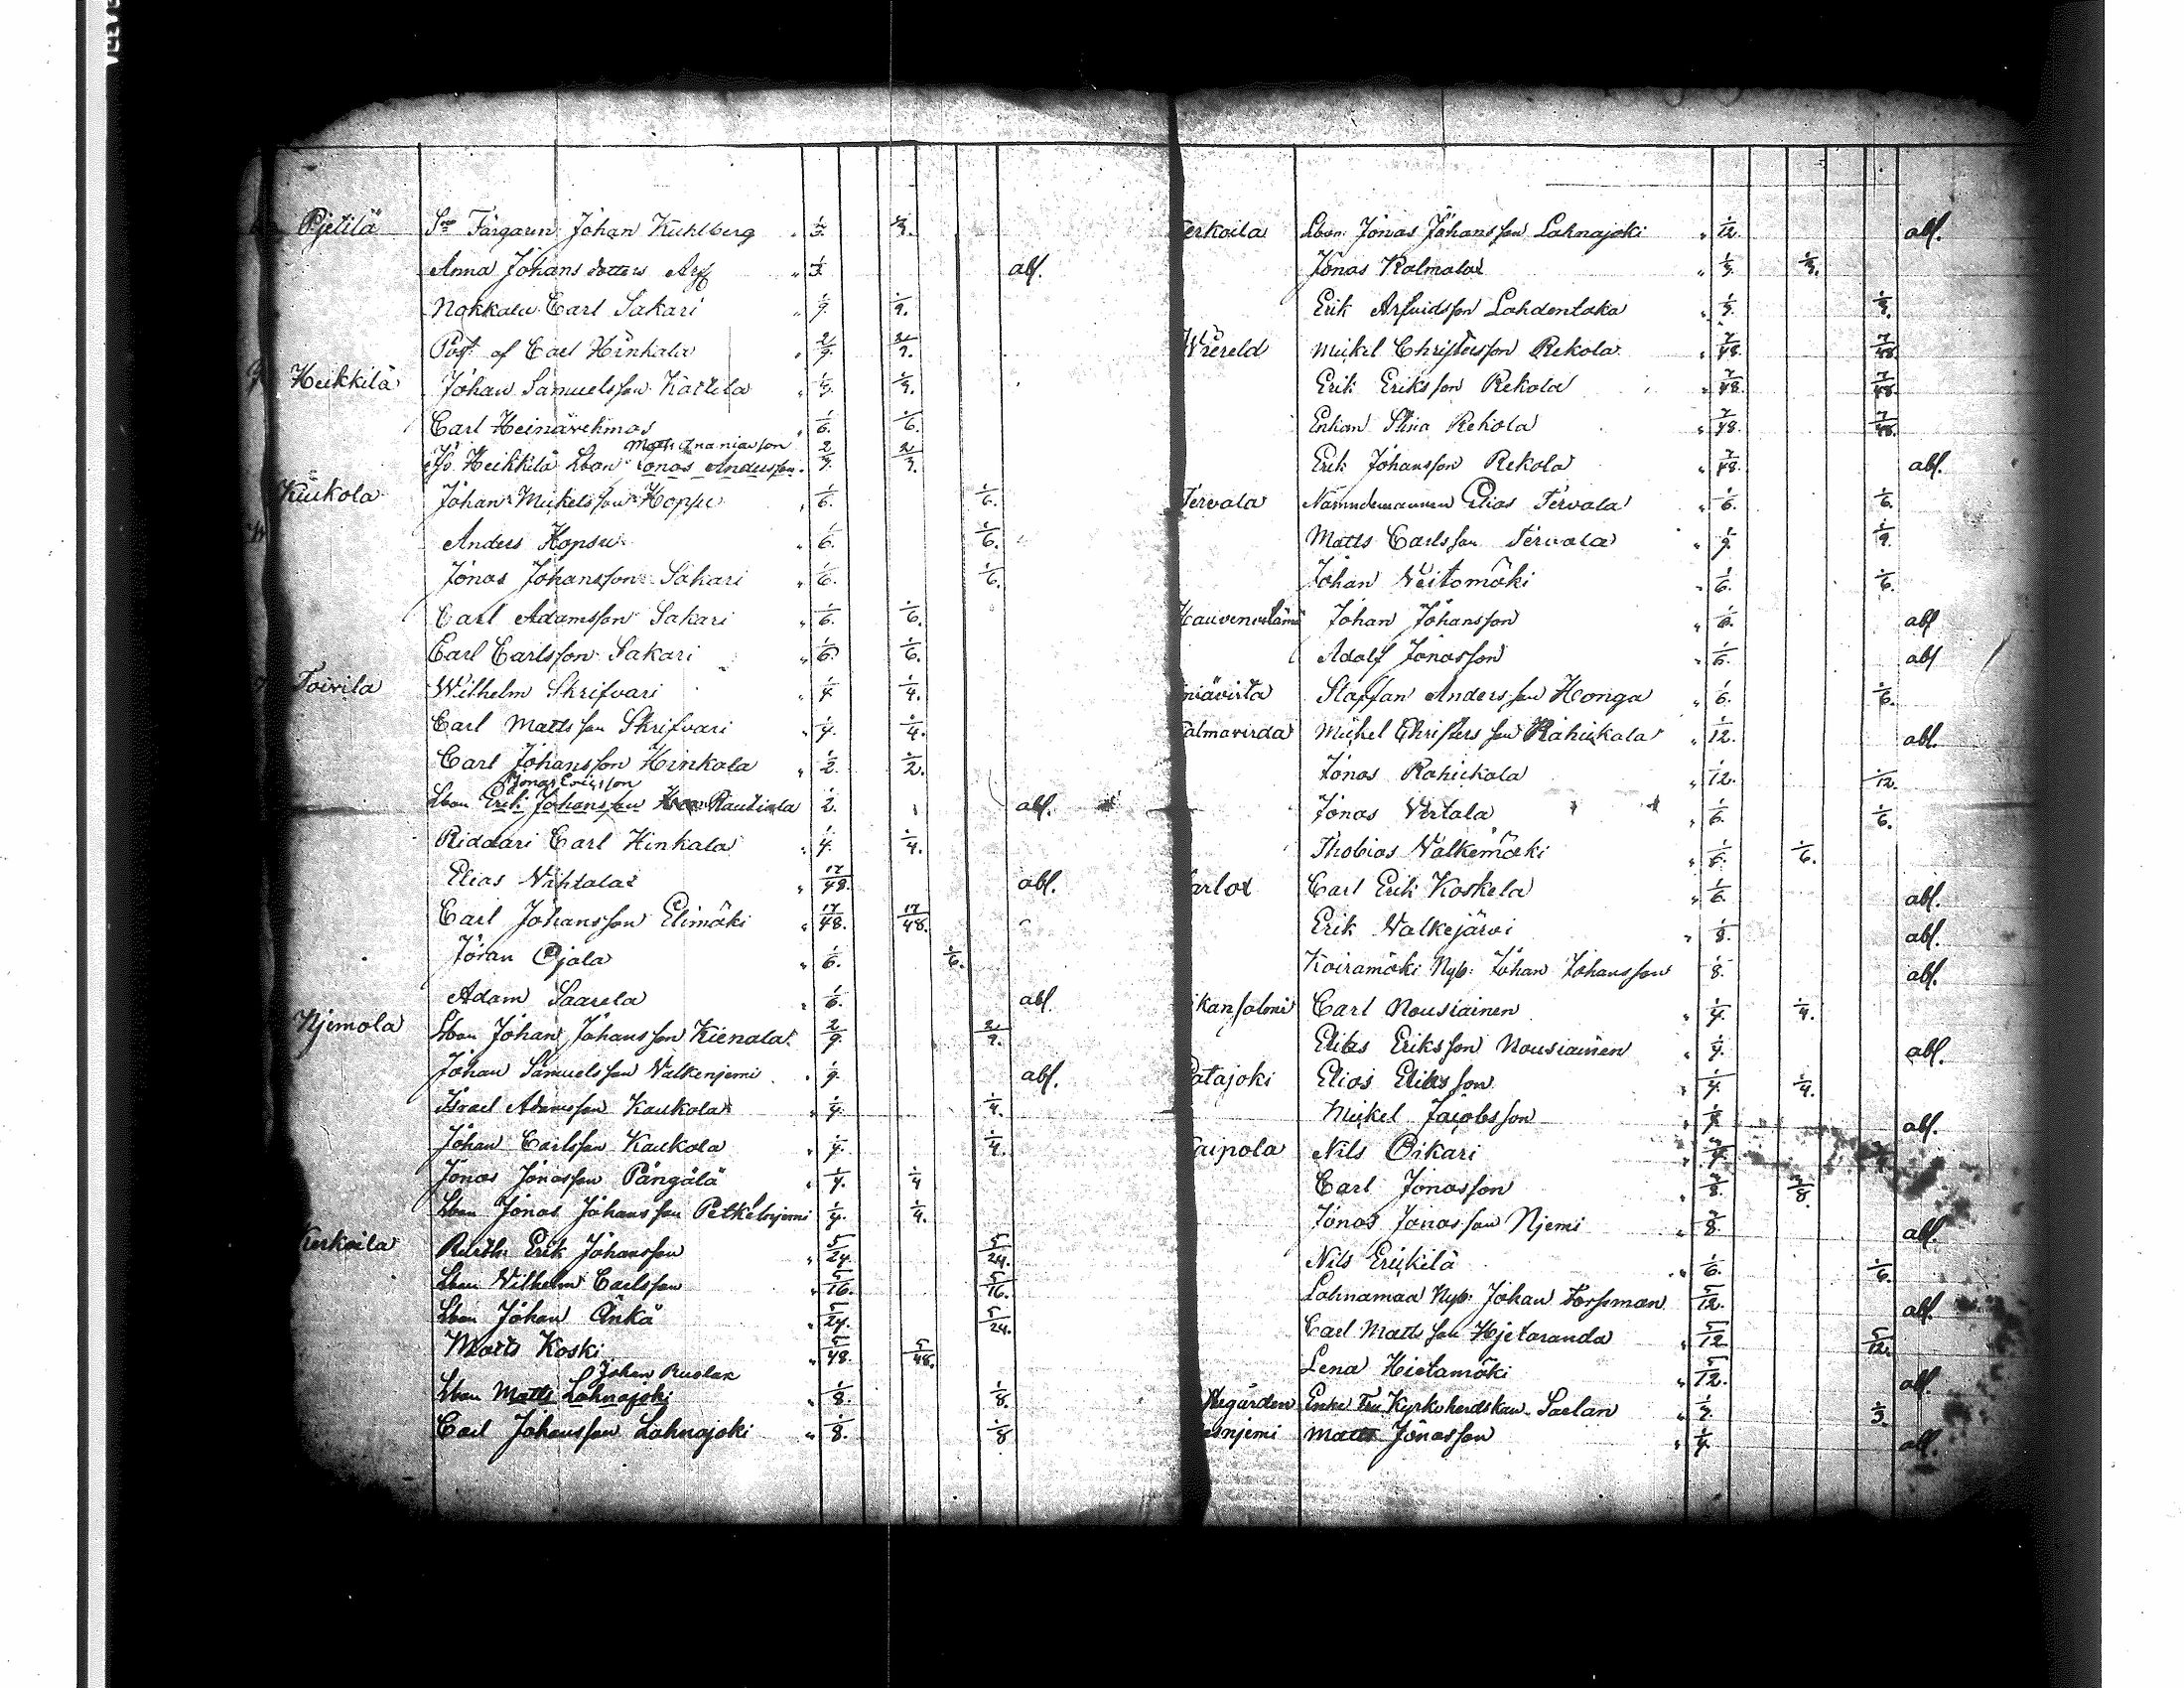 Pjetilä Sre Färgaren Johan Kuhlberg " 1/3. 1/3.
Anna Johans dotters Arf " 1/3. abs.
Nokkala Carl Sakari " 1/9. 1/9.
Post. af Carl Hinkala " 2/9. 2/9.
Heikkilä Johan Samuelsson Kattila " 1/3. 1/3.
Carl Heinävehmas " 1/6. 1/6.
Matts Ananiasson
Heikkilä Lbon Jonas Andersson " 2/3. 2/3.
Kiukola Johan Mickelsson Hopsu " 1/6. 1/6.
Anders Hopsu " 1/6. 1/6.
Jonas Johansson Sakari " 1/6. 1/6.
Carl Adamsson Sakari " 1/6. 1/6.
Carl Carlsson Sakari " 1/6. 1/6.
Toivila Wilhelm Skrifvari " 1/4. 1/4.
Carl Mattsson Skrifvari " 1/4. 1/4.
Carl Johansson Hinkala " 1/2. 1/2.
Jonas Ericsson
Lbon Erik Johansson Rautiala 1/2. abs.
Riddari Carl Hinkala " 1/4. 1/4.
Elias Nahtala " 17/48. abs.
Carl Johansson Elimäki " 17/48. 17/48.
Jöran Ojala " 1/6. 1/6.
Adam Saarela " 1/6. abs.
Njemola Lbon Johan Johansson Kienala 2/9. 2/9.
Johan Samuelsson Valkenjemi " 1/9. abs.
Israel Adamsson Kaukola " 1/4. 1/4.
Johan Carlsson Kaukola " 1/4. 1/4.
Jonas Jonasson Pängälä " 1/4. 1/4
Lbon Jonas Johansson Petkelnjemi 1/4. 1/4.
Kerkoila Erik Johansson " 5/24. 5/24.
Lbon Wilhelm Carlsson " 5/16. 5/16.
Lbon Johan Änkä " 5/24. 5/24.
Matts Koski " 5/48. 5/48.
Johan
Lbon Matts Lahnajoki " 1/8. 1/8.
Carl Johansson Lahnajoki " 1/8. 1/8
erkoila Lbon Jonas Johansson Lahnajoki " 1/12. abs.
Jonas Kalmala " 1/3. 1/3.
Erik Arfvidsson Lahdentaka " 1/3. 1/3.
Mickel Christersson Rekola " 7/48. 7/48.
Erik Eriksson Rekola " 7/48. 7/48.
Enkan Stina Rekola " 7/48. 7/48.
Erik Johansson Rekola " 7/48. abs.
Tervala Nämndemannen Elias Tervala " 1/6. 1/6.
Matts Carlsson Tervala " 1/9. 1/9.
Johan Neitomäki " 1/6. 1/6.
Johan Johansson " 1/6. abs
Adolf Jonasson " 1/6. abs
niävirta Staffan Andersson Honga " 1/6. 1/6.
almavirda Mickel Christersson Rahikkala " 1/12. abs.
Jonas Rahikkala " 1/12. 1/12.
Jonas Virtala " 1/6. 1/6.
Thobias Valkemäki " 1/6. 1/6.
arlax Carl Erik Koskela " 1/6. abs.
Erik Valkejärvi " 1/8. abs.
Koiramäki Nyb: Johan Johansson 1/8. abs.
ikansalmi Carl Nousiainen " 1/4. 1/4.
Elias Eriksson Nousiainen " 1/4. abs.
Patajoki Elias Eliasson " 1/4. 1/4.
Mickel Jacobsson " 1/4. abs.
aipola Nils Oikari
Carl Jonasson " 3/8. 3/8.
Jonas Jonasson Njemi " 3/8 abs.
Nils Erikkilä " 1/6. 1/6.
Lahnamaa Nyb: Johan Forsman 5/12. abs.
Carl Mattsson Hjetaranda " 5/12 5/12.
Lena Hietamäki " 5/12. abs.
Enke Fru Kyrkoherdskan Saelan " 1/3. 1/3.
njemi Matts Jonasson " 1/4. abs.